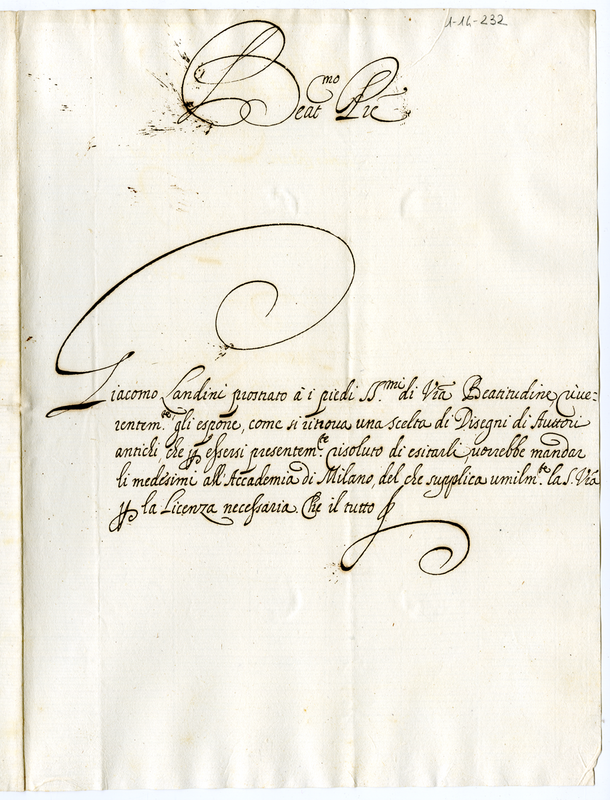 1-14-232
Beat.mo P.re
Giacomo Landini prostrato à i piedi SS.mi di V.ra Beatitudine rive-
rentem.te gli espone, come si ritrova una scelta di Disegni di Auttori
antichi, che p essersi presentem.te risoluto di esitarli, vorrebbe mandar
li medesimi all'Accademia di Milano, del che supplica umilm.te la S. V.ra
p la Licenza necessaria. Che il tutto